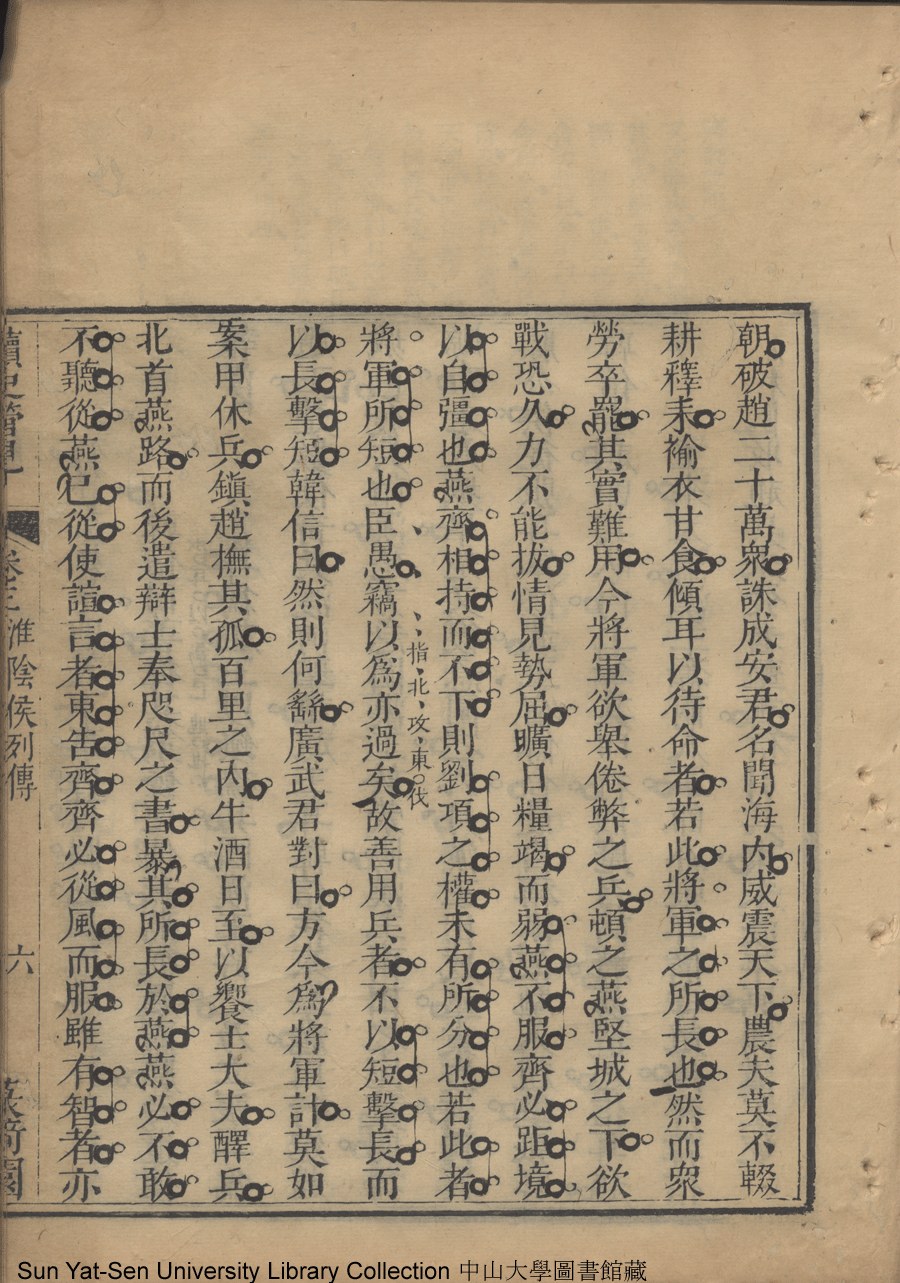 朝破趙二十萬衆誅成安君名聞海內威震天下農夫莫不輟
耕釋耒褕衣甘食傾耳以待命者若此將軍之所長也然而衆
勞卒罷其實難用今將軍欲舉倦弊之兵頓之燕堅城之下欲
戰恐久力不能拔情見勢屈曠日糧竭而弱燕不服齊必距境
以自彊也燕齊相持而不下則劉項之權未有所分也若此者
指北攻東伐
將軍所短也臣愚竊以爲亦過矣故善用兵者不以短擊長而
以長擊短韓信曰然則何繇廣武君對曰方今爲將軍計莫如
案甲休兵鎮趙撫其孤百里之內牛酒日至以饗士大夫醳兵
北首燕路而後遣辯士奉咫尺之書暴其所長於燕燕必不敢
不聽從燕已從使諠言者東告齊齊必從風而服雖有智者亦
讀史管見 卷三 淮陰侯列傳 六
Sun Yat-Sen University Library Collection 中山大學圖書館藏